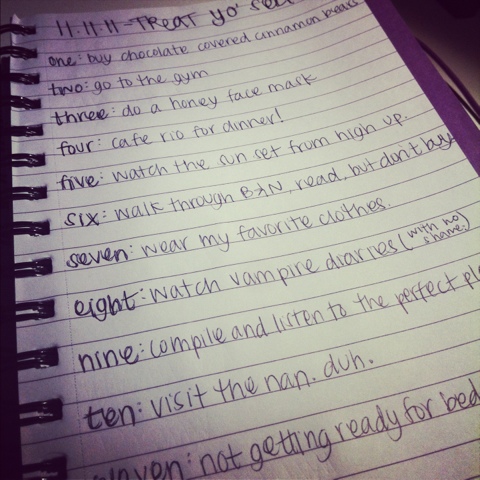 11.11.11-TREAT yo' self
one: buy chocolate covered cinnamon bears
two: go to the gym
three: do a honey face mask
four: cafe rio for dinner!
five: watch the sun set from high up.
six: walk through B&N, read, but don't buy
seven: wear my favorite clothes.
eight: watch vampire diaries (with no shame.)
nine: compile and listen to the perfect
ten: visit the nan. duh.
eleven: not getting ready for bed